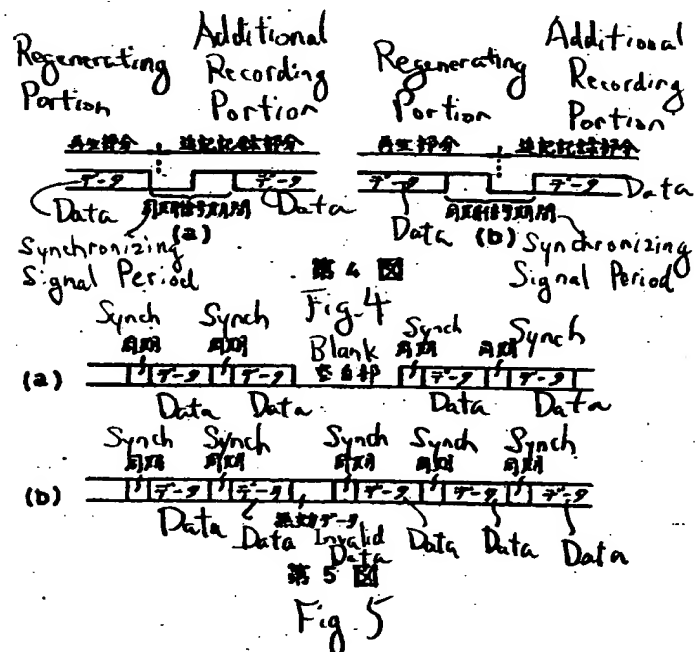 Regenerating Portion
Additional Recording Portion
Regenerating Portion
Additional Recording Portion
再生部分 追記記録部分 再生部分 追記記録部分
データ データ データ データ Data
Data Data Data
同期信号期間 同期信号期間
(a) (b)
Synchronizing Signal Period
Synchronizing Signal Period
第4図
Fig.4
Synch Synch Blank Synch Synch
同期 同期 空白部 同期 同期
(a) データ データ データ データ
Data Data Data Data
Synch Synch Synch Synch Synch
同期 同期 同期 同期 同期
(b) データ データ データ データ データ
無効データ
Data Data Invalid Data Data Data Data
第5図
Fig.5